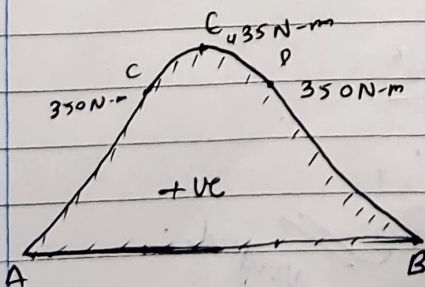 C 435 N-m
C D
350 N-m 350 N-m
+ve
A B